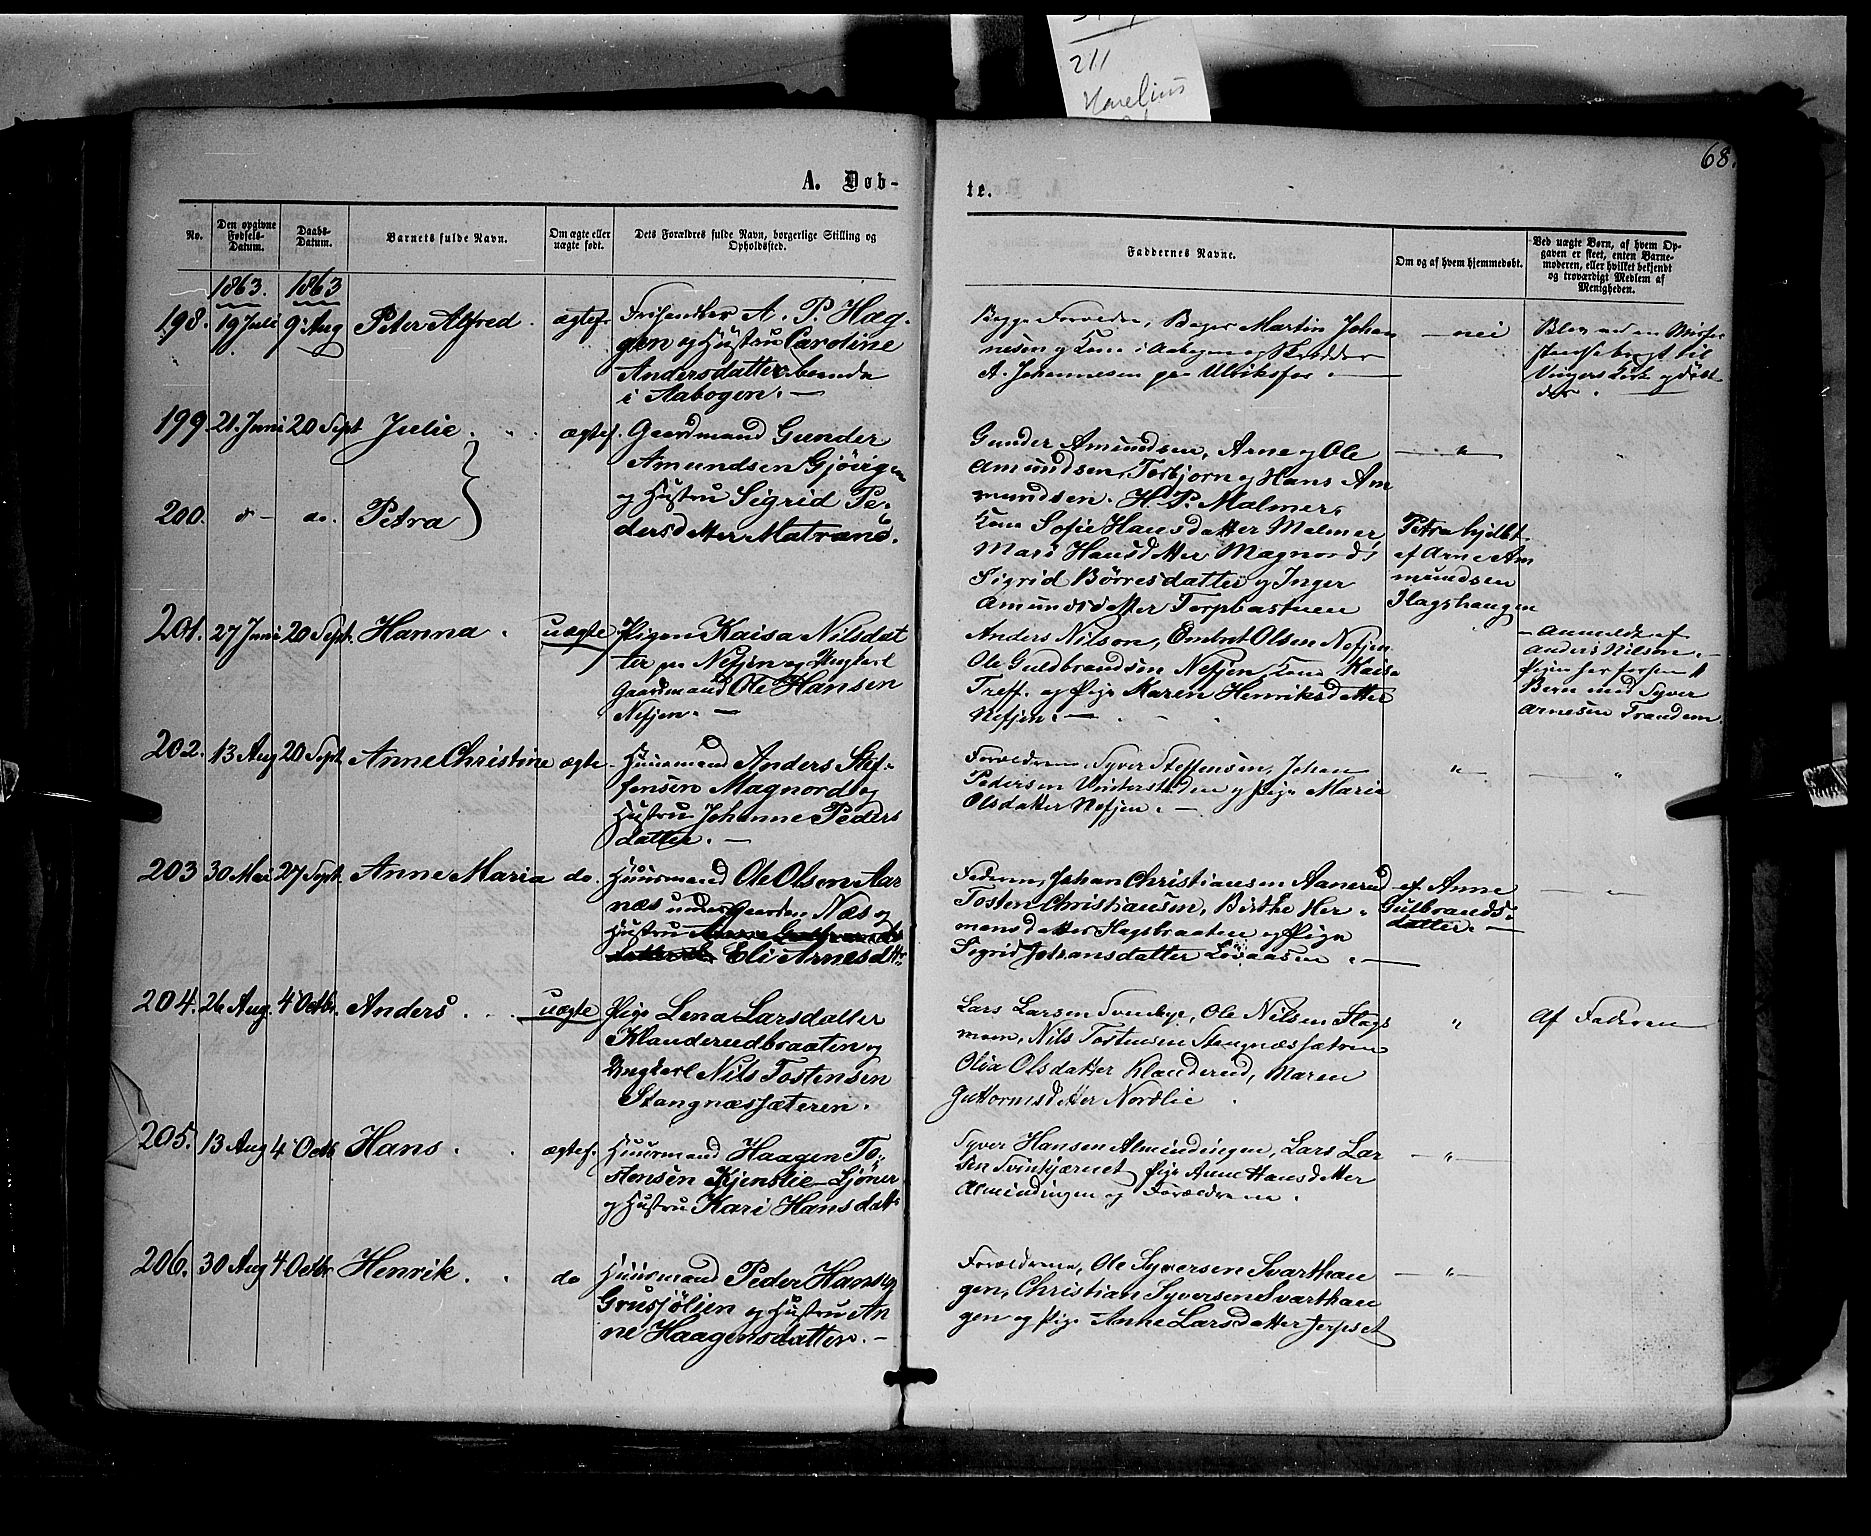 211
68.
A. Døb-
te.
No.
Den opgivne Fødsels-Datum.
Daabs-Datum.
Barnets fulde Navn.
Om ægte eller uægte født.
Dets Forældres fulde Navn, borgerlige Stilling og Opholdssted.
Faddernes Navne.
Om og af hvem hjemmedøbt.
Ved uægte Børn, af hvem Opgaven er skeet, enten Barnemoderen, eller hvilket bekjendt og troværdigt Medlem af Menigheden.
1863. 1863
198. 19 Juli 9 Aug Peter Alfred. ægtef. A. P. Hæg-
gen og Hustru Caroline
Andersdatter
i Aabogen. —
Begge Forældre, Martin Johan
nesen og Kone i Aabogen og
A. Johannesen paa —
— nei
til
Vingers Kirke og døbt
der. —
199. 21. Juni 20 Sept Julie. ægtef. Gaardmand Gunder
Amundsen Gjövigen
og Hustru Sigrid Pe-
dersdatter Matrand.
200. d— do. Petra
Gunder Amundsen, Arne og Ole
Amundsen, Torbjorn og Hans Am
mundsen. H. P. Malmer,
Kone Sofie Hansdatter Malmer
Mari Hansdatter Magnord,
Sigrid Börresdatter og Inger
Amundsdatter Torpbastuen
— " —
Petra hjdbt.
af Arne Am
mundsen
Slagshaugen
201. 27 Juni 20 Sept. Hanna . uægte Pigen Kaisa Nilsdat
ter paa Nefjen og Ungkarl
Gaardmand Ole Hansen
Nefjen. —
Anders Nilson, Embret Olsen Nefjen
Ole Guldbrandsen Nefjen, Kone Kaisa
Treff. og Pige Karen Henriksdatter
Nefjen. —
— Anmeldt af
Anders Nilsen. —
Pigen har forhen 1
Barn med Syver
Arnesen Trandem
202. 13 Aug 20 Sept Anne Christine ægte Huusmand Anders Stef-
fensen Magnord og
Hustru Johanne Peders
datter. —
Forældrene, Syver Steffensen, Johan
Pedersen og Pige Marie
Olsdatter Nefjen. —
— " —
— " —
203 30 Mai 27 Sept. Anne Maria do. Huusmand Ole Olsen Aar
næs under Gaarden Næs og
Hustru
Eli Arnesdtr
Faderen, Johan Christiansen Aanerud
Tosten Christiansen, Birthe Her-
mansdatter Slagbraaten og Pige
Sigrid Johansdatter Lövaasen. —
af Anne
Gulbrands-
datter. —
— " —
204. 26 Aug. 4 Octbr. Anders . uægte Pige Lena Larsdatter
Klanderudbraaten og
Ungkarl Nils Tostensen
Stangnæssæteren.
Lars Larsen Svenbye, Ole Nilsen Slags
moen, Nils Tostensen Stangnæssætren
Olea Olsdatter Klanderud, Maren
Guttormsdatter Nordlie .
"
Af Faderen
205. 13 Aug 4 Octb Hans . ægtef. Huusmand Haagen To-
stensen Kjenslie Sjöner
og Hustru Kari Hansdatt
Syver Hansen Almindingen, Lars Lar
sen Svintjærnet Pige Anne Hansdatter
Almindingen og Forældrene.
— " —
206. 30 Aug 4 Octbr Henrik. do Huusmand Peder Hansen
Grussjölien og Hustru An
ne Haagensdatter. —
Forældrene, Ole Syversen Svarthau
gen, Christian Syversen Svarthau
gen og Pige Anne Larsdatter Jerpset
— " —